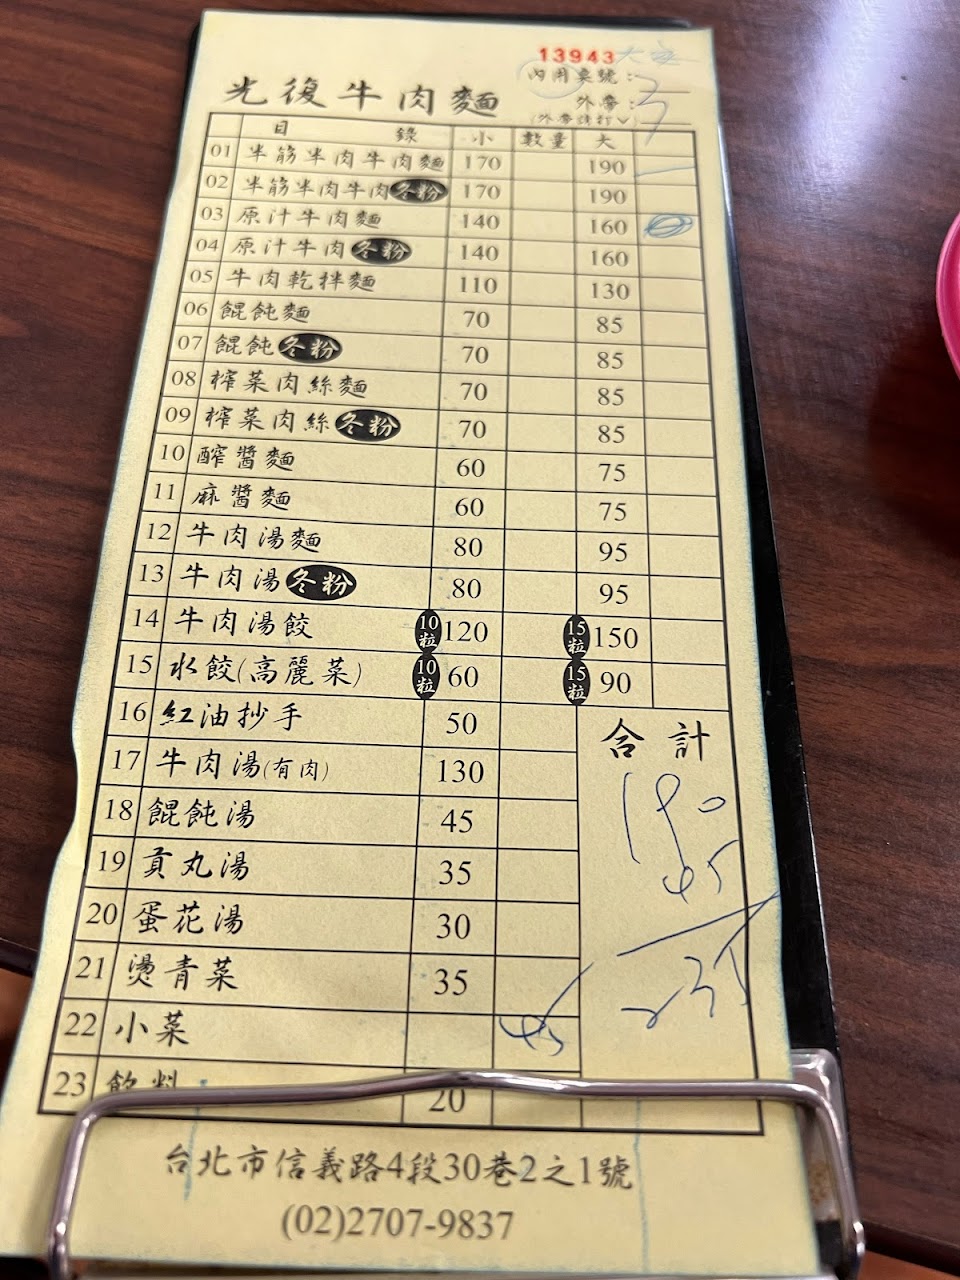 13943
內用桌號：3
光復牛肉麵
外帶：
(外帶請打∨)
目錄 小 數量 大
01 半筋半肉牛肉麵 170 190
02 半筋半肉牛肉冬粉 170 190
03 原汁牛肉麵 140 160
04 原汁牛肉冬粉 140 160
05 牛肉乾拌麵 110 130
06 餛飩麵 70 85
07 餛飩冬粉 70 85
08 榨菜肉絲麵 70 85
09 榨菜肉絲冬粉 70 85
10 醡醬麵 60 75
11 麻醬麵 60 75
12 牛肉湯麵 80 95
13 牛肉湯冬粉 80 95
14 牛肉湯餃 10粒 120 15粒 150
15 水餃(高麗菜) 10粒 60 15粒 90
16 紅油抄手 50
合計
17 牛肉湯(有肉) 130
190
18 餛飩湯 45
45
19 貢丸湯 35
20 蛋花湯 30
235
21 燙青菜 35
22 小菜 45
23 飲料 20
台北市信義路4段30巷2之1號
(02)2707-9837